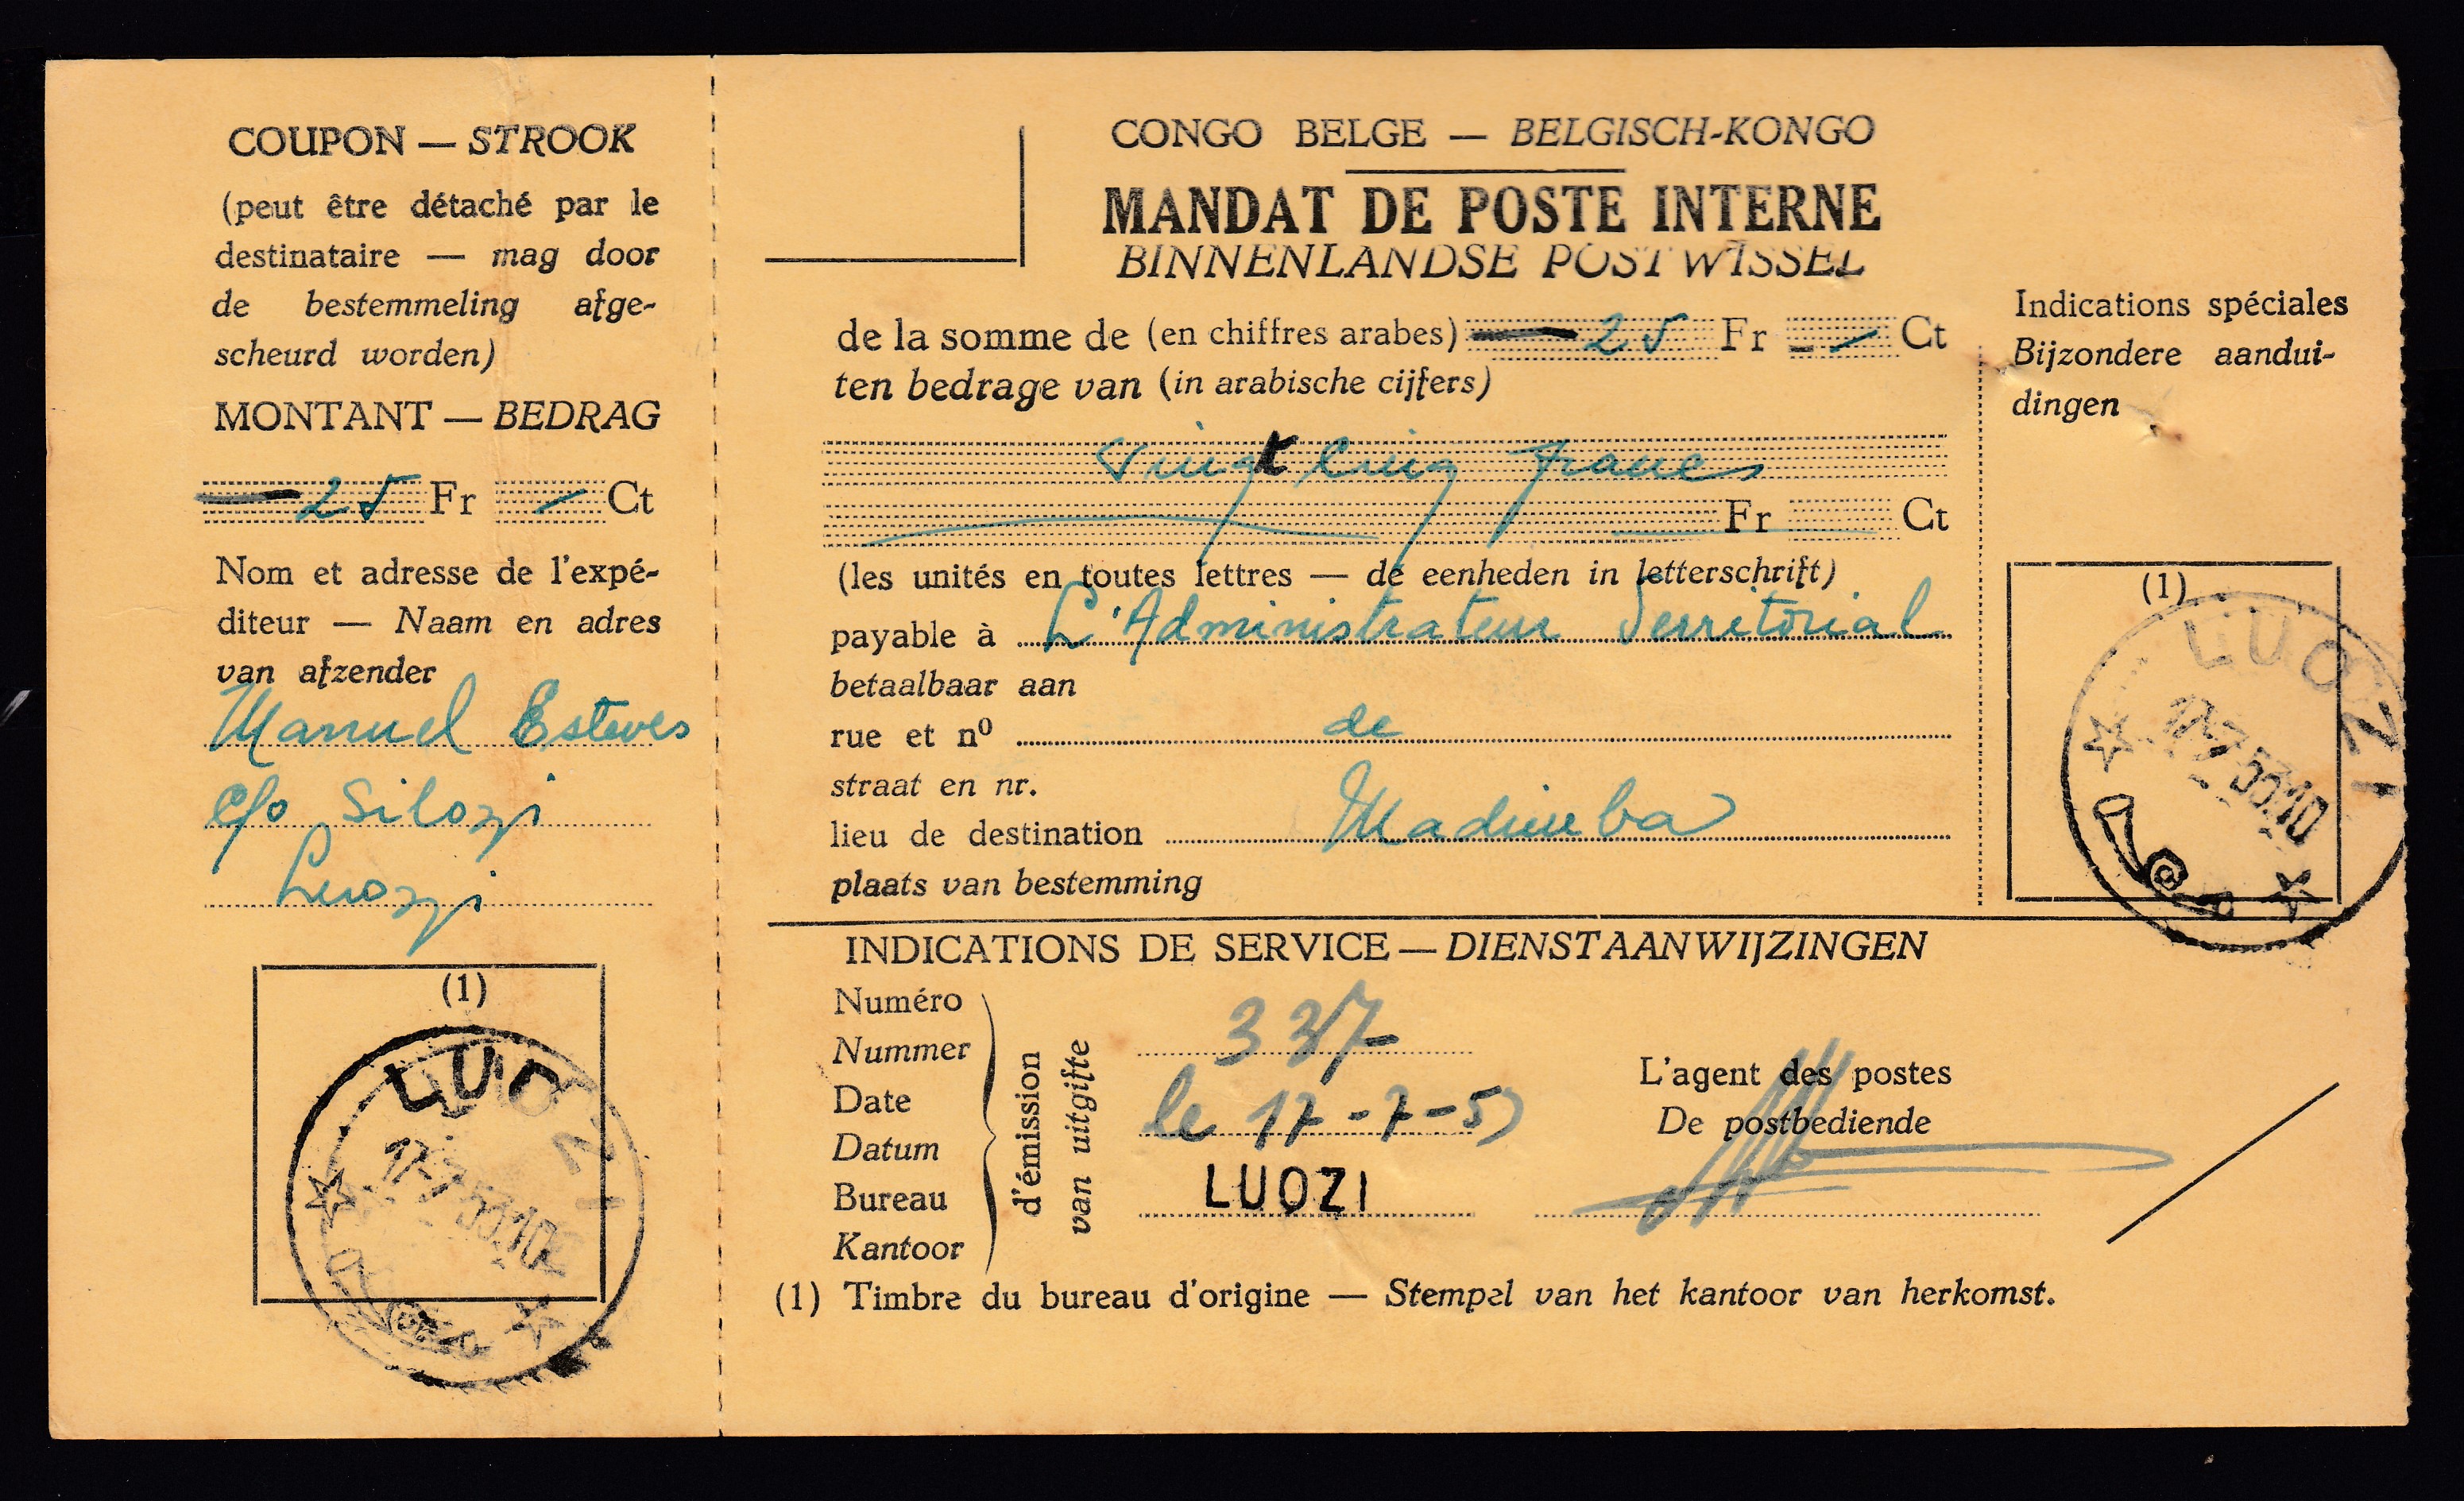 COUPON — STROOK
(peut être détaché par le
destinataire — mag door
de bestemmeling afge-
scheurd worden)
MONTANT — BEDRAG
25 Fr — Ct
Nom et adresse de l'expé-
diteur — Naam en adres
van afzender
Manuel Esteves
c/o Silozi
Luozi
(1)
LUOZI
17-7-53-10
CONGO BELGE — BELGISCH-KONGO
MANDAT DE POSTE INTERNE
BINNENLANDSE POSTWISSEL
de la somme de (en chiffres arabes) — 25 Fr — Ct
ten bedrage van (in arabische cijfers)
Vingt cinq francs
Fr Ct
(les unités en toutes lettres — de eenheden in letterschrift)
payable à L'Administrateur Territorial
betaalbaar aan
rue et nº de
straat en nr.
lieu de destination Madimba
plaats van bestemming
Indications spéciales
Bijzondere aandui-
dingen
(1)
LUOZI
17-7-53-10
INDICATIONS DE SERVICE — DIENSTAANWIJZINGEN
Numéro
Nummer
337
Date
Datum
le 17-7-53
Bureau
Kantoor
LUOZI
d'émission
van uitgifte
L'agent des postes
De postbediende
(1) Timbre du bureau d'origine — Stempel van het kantoor van herkomst.